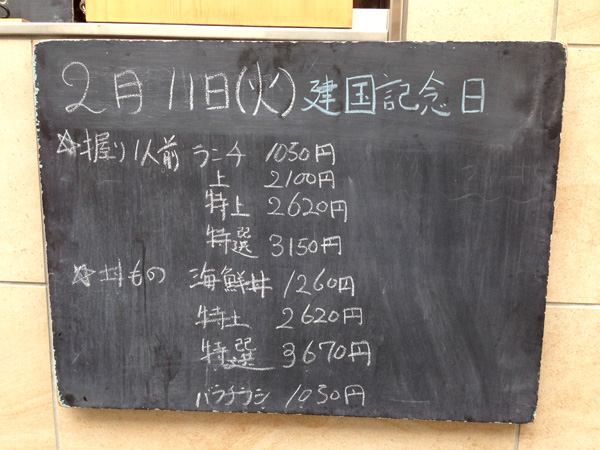 2月11日(火)建国記念日
☆握り1人前 ランチ 1050円
上 2100円
特上 2620円
特選 3150円
☆丼もの 海鮮丼 1260円
特上 2620円
特選 3670円
バラチラシ 1050円